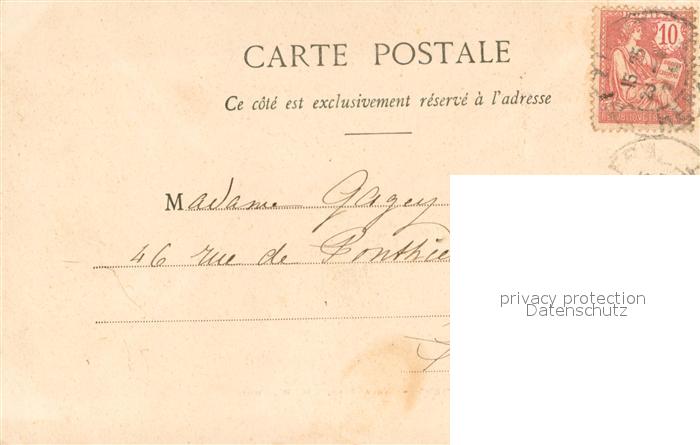 CARTE POSTALE
10
Ce côté est exclusivement réservé à l'adresse
Madame Gagey
46 rue de Ponthieu
privacy protection
Datenschutz